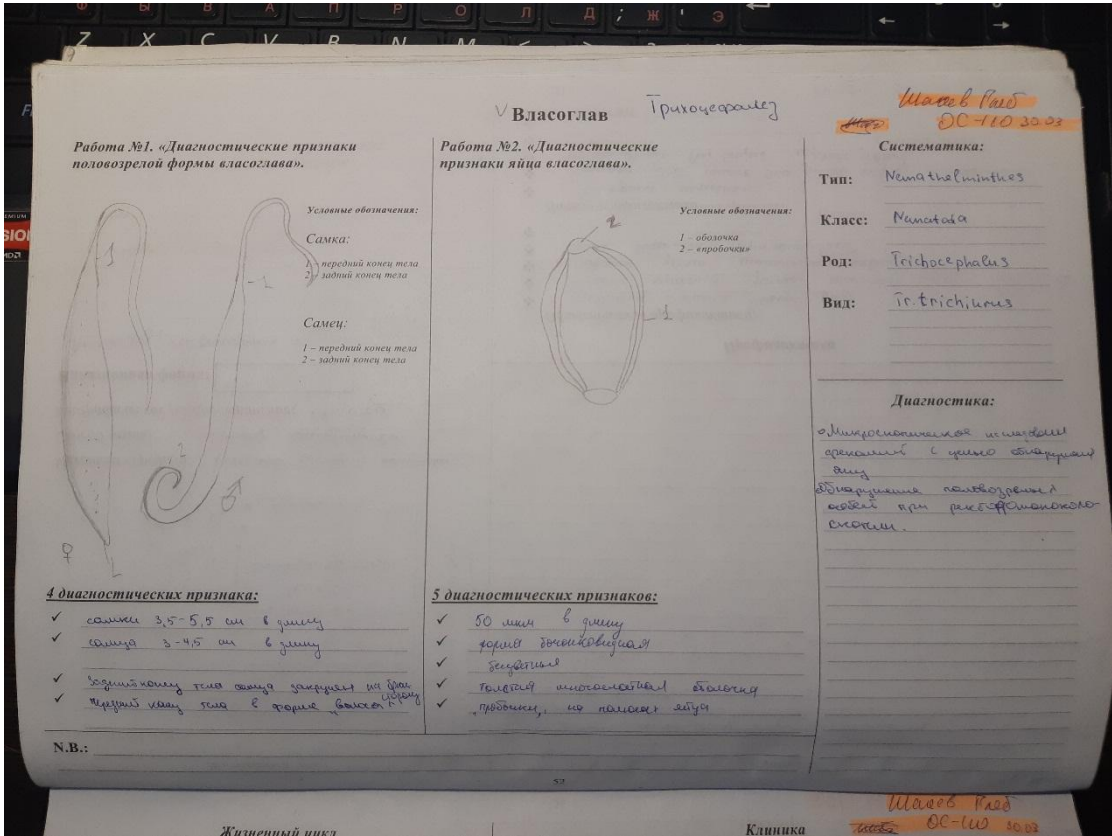 Ф Ы В А П Р О Л Д ; Ж ' Э
Z X C V B N M < >
Власоглав
Трихоцефалез
ОС-110 30.03
Работа №1. «Диагностические признаки
половозрелой формы власоглава».
Условные обозначения:
Самка:
1 – передний конец тела
2 – задний конец тела
Самец:
1 – передний конец тела
2 – задний конец тела
1
2
1
2
♀
♂
4 диагностических признака:
✓ самки 3,5-5,5 см в длину
✓ самца 3-4,5 см в длину
✓ Задний конец тела самца закручен на брюш сторону
✓ Передний конец тела в форме "волоса".
Работа №2. «Диагностические
признаки яйца власоглава».
Условные обозначения:
1 – оболочка
2 – «пробочки»
2
1
5 диагностических признаков:
✓ 50 мкм в длину
✓ форма бочонковидная
✓ бесцветные
✓ толстая многослойная оболочка
✓ "пробочки" на полюсах яйца
Систематика:
Тип: Nemathelminthes
Класс: Nematoda
Род: Trichocephalus
Вид: Tr. trichiurus
Диагностика:
Микроскопическое исследован
фекалий с целью обнаружения
яиц
Обнаружение половозрелых
особей при ректороманоколо-
скопии.
N.B.:
52
ОС-110 30.03
Жизненный цикл
Клиника